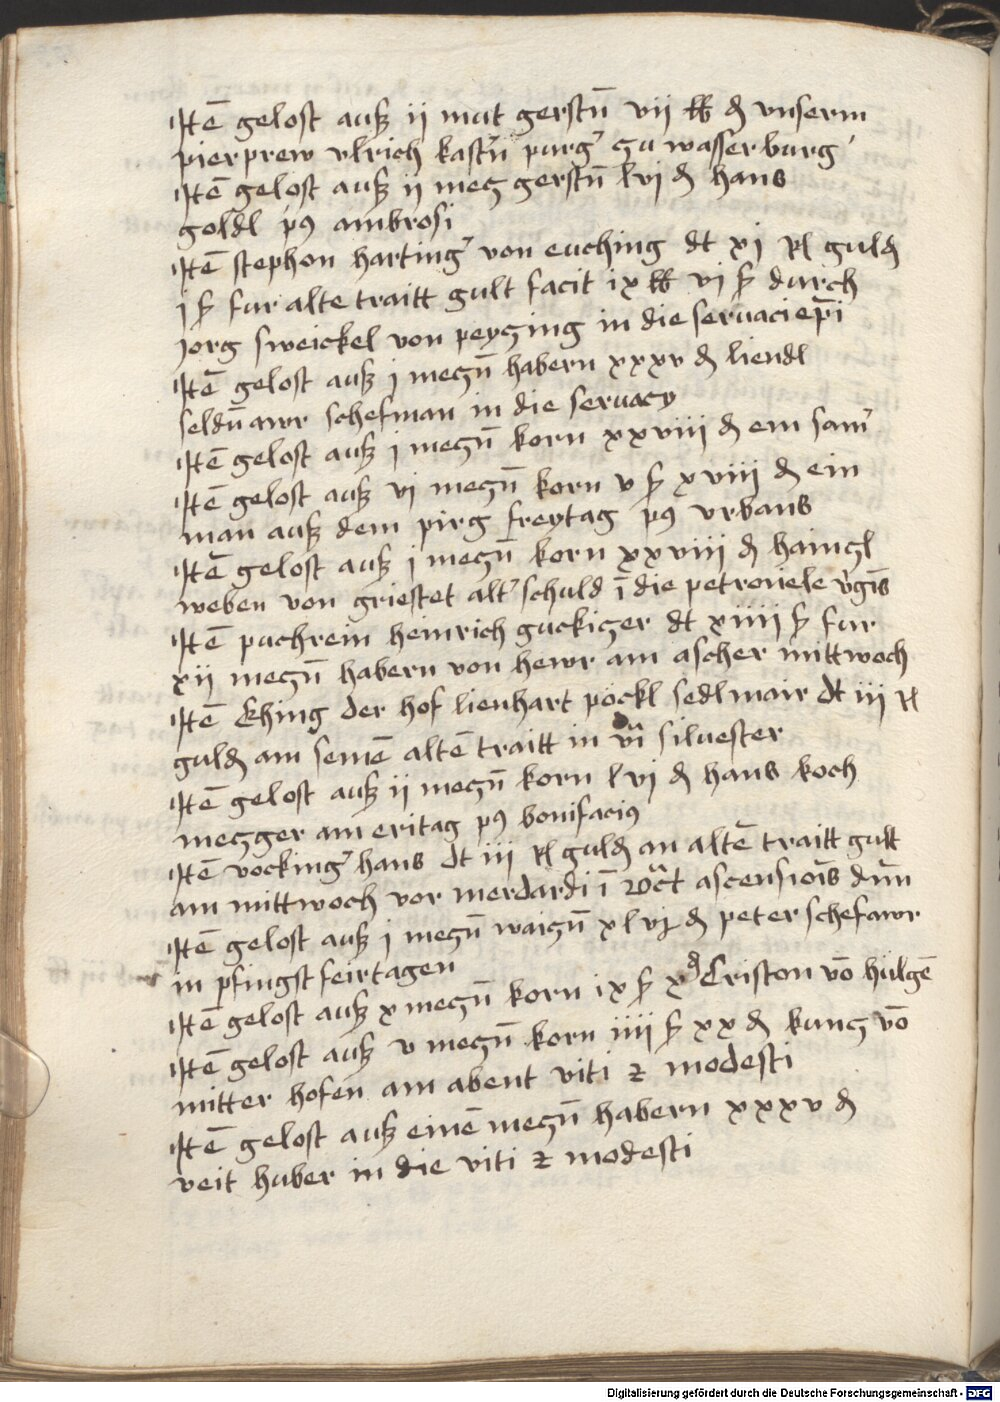 Itē gelost auß ij mut gerstn̄ vij lb ₰ vnserm
pierprew vlrich kastn̄ purg' zu wasserburg
Itē gelost auß ij mecz gerstn̄ lvj ₰ hans
goldl p9 ambrosi
Itē stephon harting' von euching dt xj Rl guld
j ß fur alte traitt gult facit ix lb vj ß durch
jorg sweickel von peyczing in die seruacij ep̄i
Itē gelost auß j meczn̄ habern xxxv ₰ liendl
seldn̄awr schefman in die seruacy
Itē gelost auß j meczn̄ korn xxviij ₰ em sam'
Itē gelost auß vj meczn̄ korn v ß xviij ₰ ein
man auß dem pirg freytag p9 vrbans
Itē gelost auß j meczn̄ korn xxviij ₰ hainczl
weben von griestet alt' schuld ī die petronele v'gīs
Itē puchrein heinrich guckiczer dt xiiij ß fur
xij meczn̄ habern von hewr am ascher mittwoch
Itē Ehing der hof lienhart pöckl sedlmair dt iij Rl
guld am seinē altē traitt in vī siluester
Itē gelost auß ij meczn̄ korn lvj ₰ hans koch
meczger am eritag p9 bonifacius
Itē vocking' hans dt iij Rl guld an altē traitt gult
am mittwoch vor merdardi ī octā ascensiōis dn̄i
Itē gelost auß j meczn̄ waiczn̄ xlvj ₰ peter schefawr
in pfingstfeirtagen
Itē gelost auß x meczn̄ korn ix ß x ₰ Criston vō hülgē
Itē gelost auß v meczn̄ korn iiij ß xx ₰ kuncz vō
mitter hofen am abent viti ⁊ modesti
Itē gelost auß einē meczn̄ habern xxxv ₰
veit huber in die viti ⁊ modesti
Digitalisierung gefördert durch die Deutsche Forschungsgemeinschaft - DFG